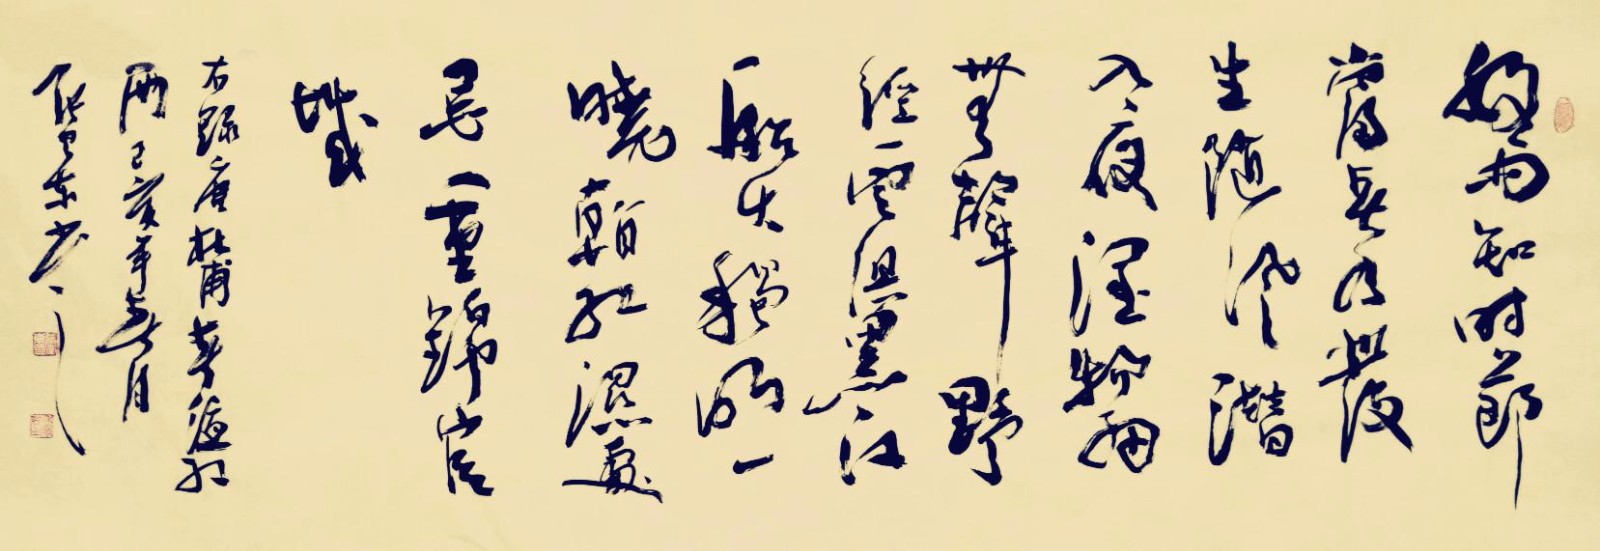 好雨知时節
當春乃發
生隨風潛
入夜潤物細
無聲野
徑雲俱黑江
船火獨明
曉看紅濕處
花重錦官
城
右録唐杜甫春夜喜
雨己亥年春月
東书